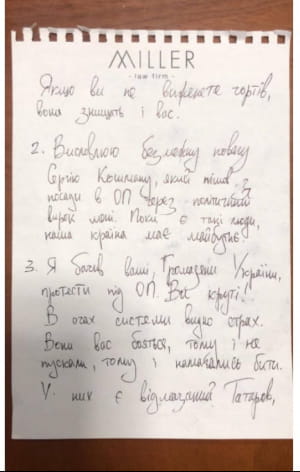 MILLER
- law firm -
Якщо ви не виженете чортів,
вони знищать і вас.
2. Висловлюю безмежну повагу
Сергію, який пішов з
посади в ОП через політичний
вирок мені. Поки є такі люди,
наша країна має майбутнє.
3. Я бачив ваші, Громадяни України,
протести під ОП. Ви круті!
В очах системи видно страх.
Вони вас бояться, тому і не
пускали, тому і намагались бити.
У них є відмазаний Татаров,